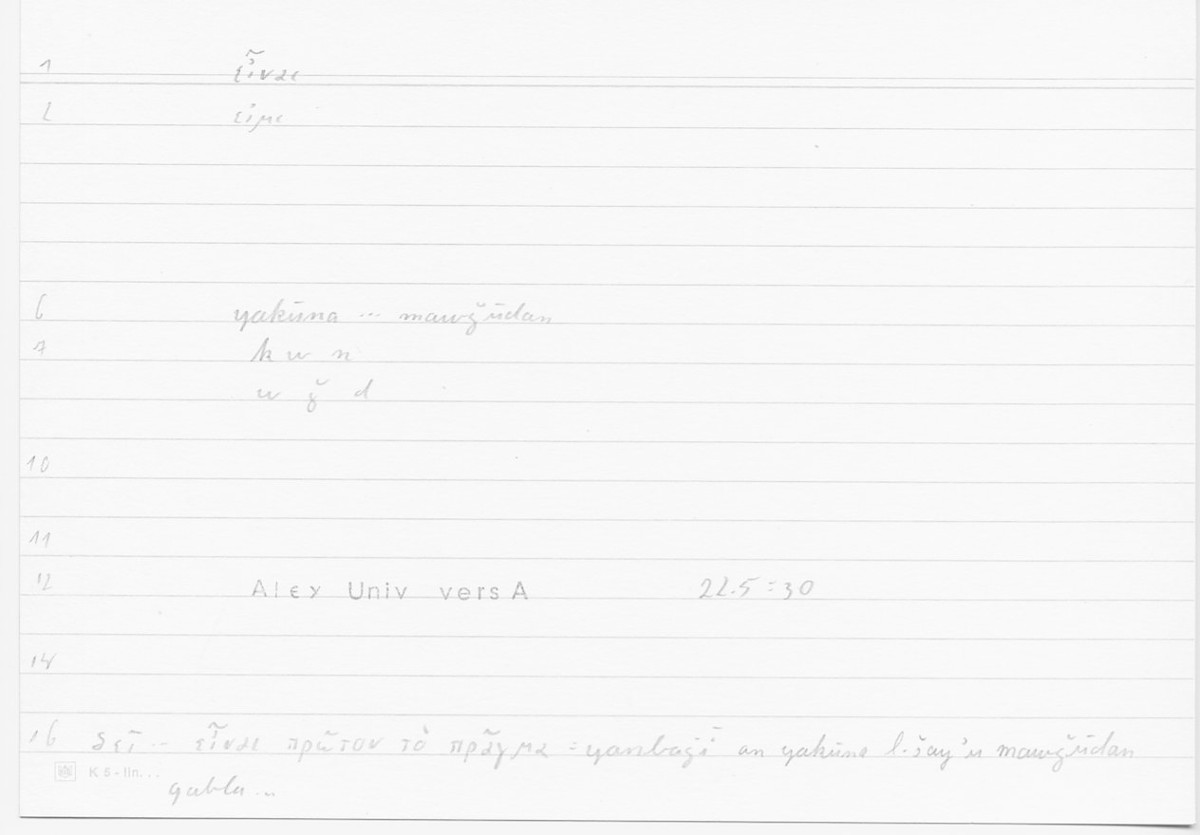 1 εἶναι
2 εἰμι
6 yakūna ... mawǧūdan
7 k w n
w ǧ d
10
11
12 Alex Univ vers A 22.5 = 30
14
16 δεῖ ... εἶναι πρῶτον τὸ πρᾶγμα = yanbaġī an yakūna l-šayʾu mawǧūdan
K 5 - lin...
qabla ...